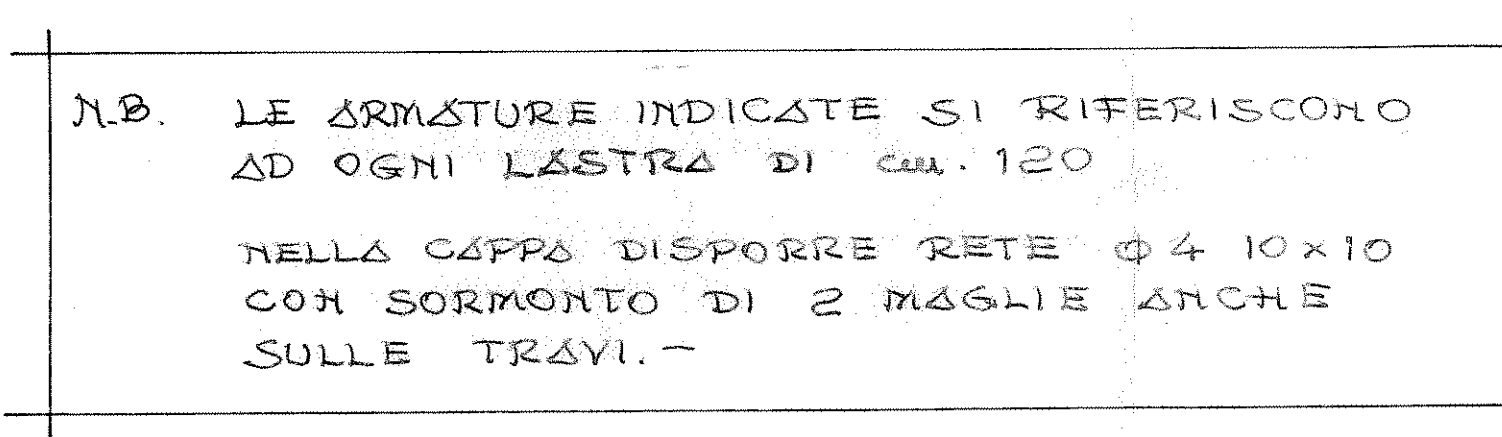 N.B. LE ARMATURE INDICATE SI RIFERISCONO
AD OGNI LASTRA DI cm. 120
NELLA CAPPA DISPORRE RETE φ 4 10 x 10
CON SORMONTO DI 2 MAGLIE ANCHE
SULLE TRAVI.-